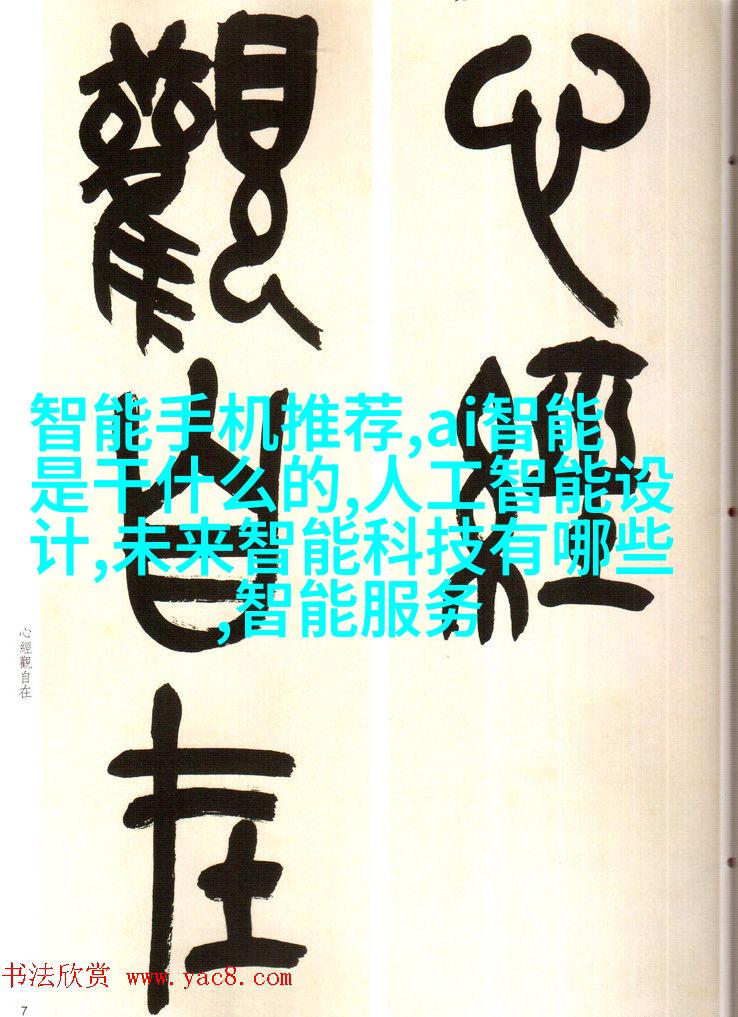 心經
觀自在
智能手机推荐,ai智能
是干什么的,人工智能设
计,未来智能科技有哪些
,智能服务
心經觀自在
书法欣赏 www.yac8.com
7